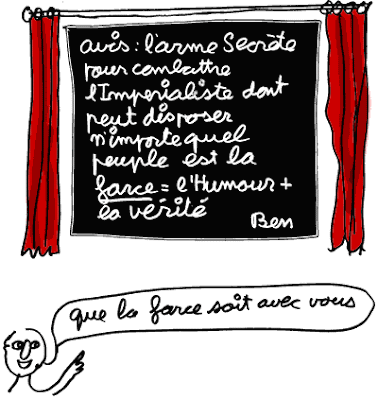 avis : l'arme Secrète
pour combattre
l'Imperialiste dont
peut disposer
n'importe quel
peuple est la
farce = l'Humour +
la vérité
Ben
que la farce soit avec vous